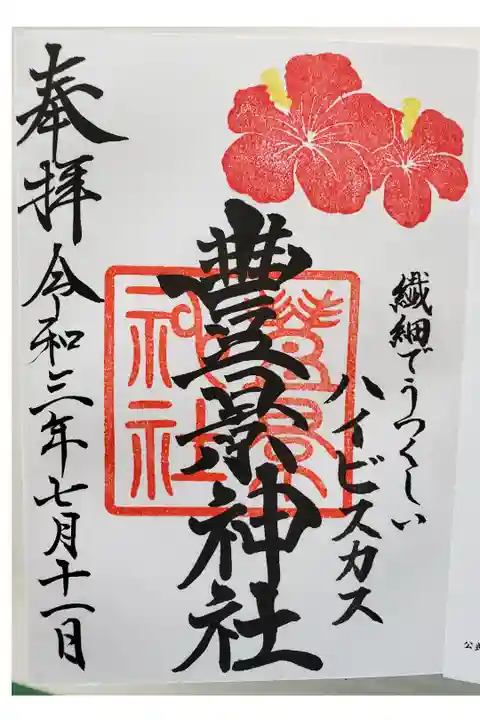 繊細でうつくしい
ハイビスカス
豊景神社
豊景神社
奉拝 令和三年七月十一日